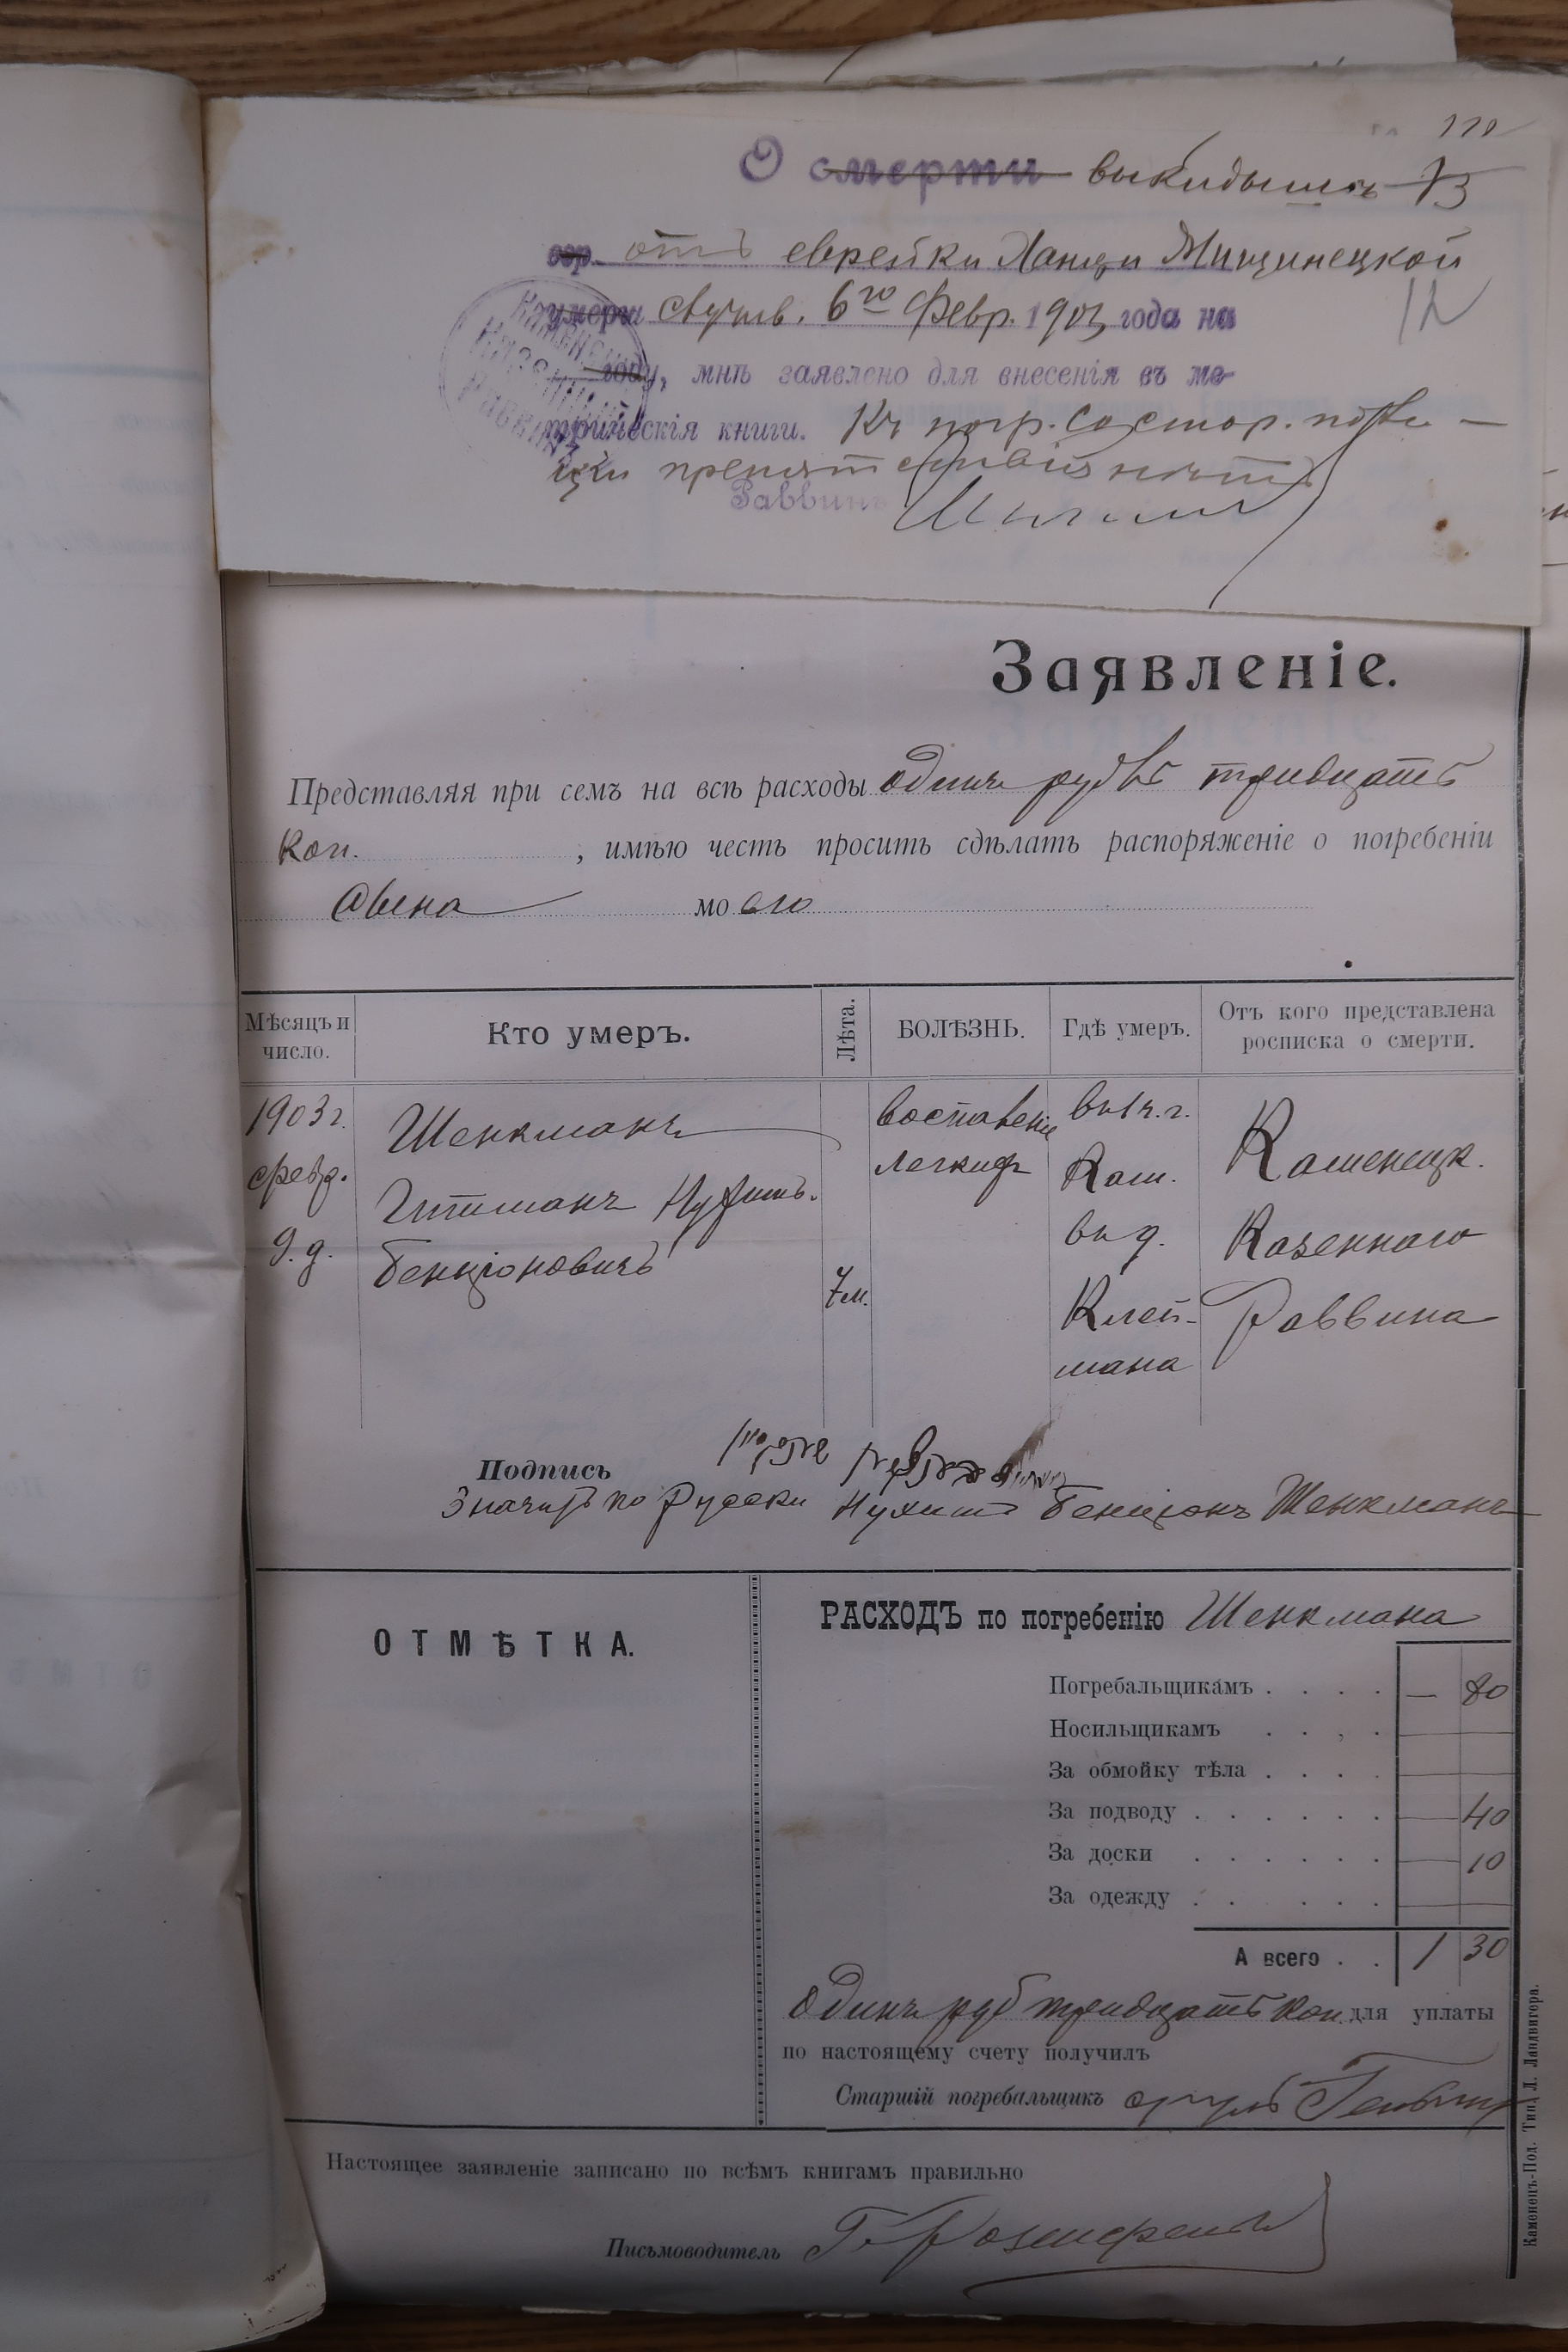 О смерти выкидышъ 13
евр. отъ еврейки Ханци Мищинецкой
умерш случив. 6го Февр. 1903 года на
12
году, мнѣ заявлено для внесенія въ ме-
трическія книги. Къ погр. со стор.
препятствій нѣтъ
Раввинъ
Заявленіе.
Представляя при семъ на всѣ расходы одинъ рубль тридцать
коп. , имѣю честь просить сдѣлать распоряженіе о погребеніи
сына моего
Мѣсяцъ и число. Кто умеръ. Лѣта. БОЛѢЗНЬ. Гдѣ умеръ. Отъ кого представлена росписка о смерти.
1903 г. Шенкманъ воспаленіе въ г. Каменецк.
февр. легкихъ Кам. Казеннаго
9. д. Бенціоновичъ 7 м. въ д. Клей- Раввина
мана
Подпись
Значитъ по Русски Нухимъ Бенціонъ Шенкманъ
ОТМѢТКА.
РАСХОДЪ по погребенію Шенкмана
Погребальщикамъ . . . . — 80
Носильщикамъ . . . .
За обмойку тѣла . . . .
За подводу . . . . . . — 40
За доски . . . . . . — 10
За одежду . . . . .
А всего . . 1 30
Одинъ руб тридцать коп. для уплаты
по настоящему счету получилъ
Старшій погребальщикъ
Настоящее заявленіе записано по всѣмъ книгамъ правильно
Письмоводитель
Каменецъ-Под. Тип. Л. Ландвигера.